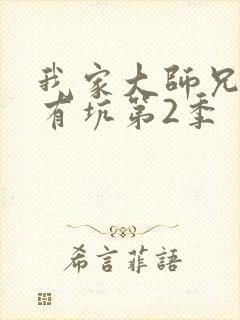 我家大師兄
有坑第2季
希言菲語